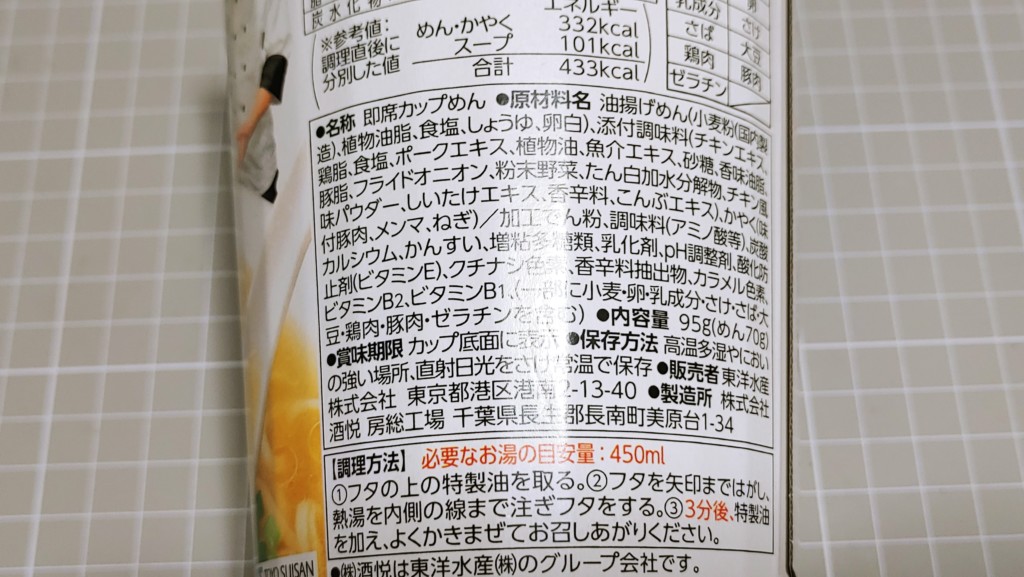 炭水化物
エネルギー
乳成分
さば さけ
鶏肉 大豆
ゼラチン 豚肉
※参考値:
調理直後に
分別した値
めん・かやく 332kcal
スープ 101kcal
合計 433kcal
●名称 即席カップめん ●原材料名 油揚げめん(小麦粉(国内製
造)、植物油脂、食塩、しょうゆ、卵白)、添付調味料(チキンエキス、
鶏脂、食塩、ポークエキス、植物油、魚介エキス、砂糖、香味油脂、
豚脂、フライドオニオン、粉末野菜、たん白加水分解物、チキン風
味パウダー、しいたけエキス、香辛料、こんぶエキス)、かやく(味
付豚肉、メンマ、ねぎ)/加工でん粉、調味料(アミノ酸等)、炭酸
カルシウム、かんすい、増粘多糖類、乳化剤、pH調整剤、酸化防
止剤(ビタミンE)、クチナシ色素、香辛料抽出物、カラメル色素、
ビタミンB2、ビタミンB1、(一部に小麦・卵・乳成分・さけ・さば・大
豆・鶏肉・豚肉・ゼラチンを含む) ●内容量 95g(めん70g)
●賞味期限 カップ底面に表示 ●保存方法 高温多湿やにおい
の強い場所、直射日光をさけ常温で保存 ●販売者 東洋水産
株式会社 東京都港区港南2-13-40 ●製造所 株式会社
酒悦 房総工場 千葉県長生郡長南町美原台1-34
【調理方法】 必要なお湯の目安量:450ml
①フタの上の特製油を取る。②フタを矢印まではがし、
熱湯を内側の線まで注ぎフタをする。③3分後、特製油
を加え、よくかきまぜてお召しあがりください。
●㈱酒悦は東洋水産㈱のグループ会社です。
TOYO SUISAN